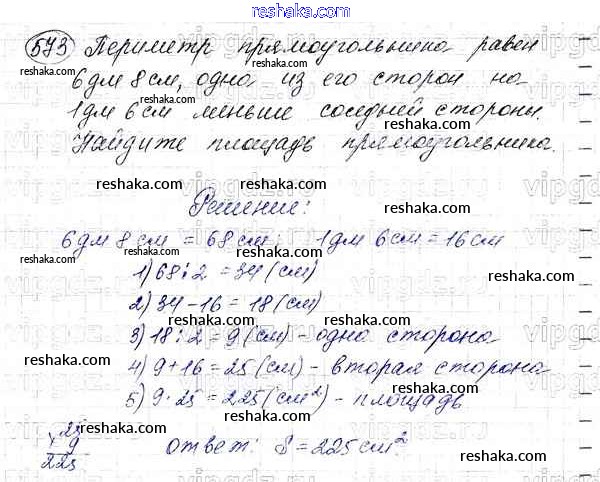 reshaka.com
573 Периметр прямоугольника равен
reshaka.com reshaka.com
6 дм 8 см, одна из его сторон на
reshaka.com
1 дм 6 см меньше соседней стороны.
reshaka.com
Найдите площадь прямоугольника.
reshaka.com reshaka.com
Решение:
reshaka.com
6 дм 8 см = 68 см; 1 дм 6 см = 16 см
reshaka.com reshaka.com
1) 68 : 2 = 34 (см)
reshaka.com
2) 34 - 16 = 18 (см)
reshaka.com
3) 18 : 2 = 9 (см) - одна сторона
reshaka.com reshaka.com
4) 9 + 16 = 25 (см) - вторая сторона
reshaka.com
5) 9 · 25 = 225 (см²) - площадь
reshaka.com
× 25
9
225
ответ: S = 225 см²
reshaka.com reshaka.com